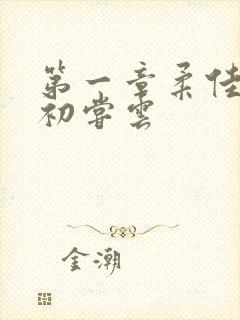 第一章柔佳
初尝云
金潮